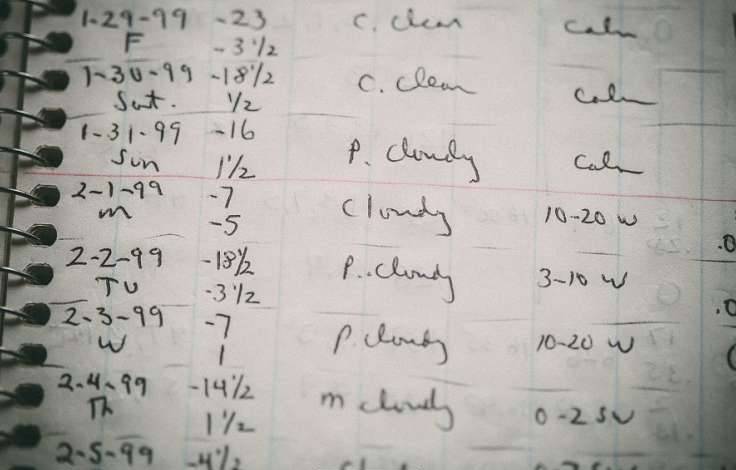 1-29-99 -23 C. clear Calm
F -3 1/2
1-30-99 -18 1/2 C. clear Calm
Sat. 1/2
1-31-99 -16 P. Cloudy Calm
Sun 1 1/2
2-1-99 -7 Cloudy 10-20 W
m -5 .0
2-2-99 -18 1/2 P. cloudy 3-10 W
TU -3 1/2 .0
2-3-99 -7 P. cloudy 10-20 W
W 1
2-4-99 -14 1/2 m cloudy
Th 1 1/2
2-5-99 -4 1/2